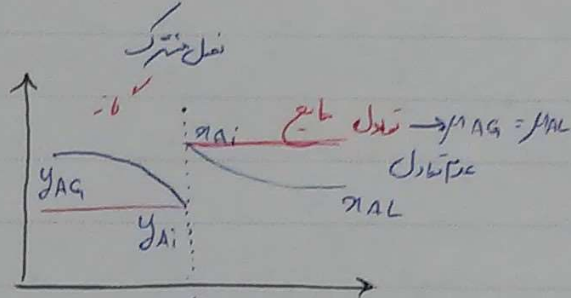 فصل مشترک
گاز
مایع تعادل → μAG = μAL
عدم تعادل
xAi
yAG
yAi
xAL